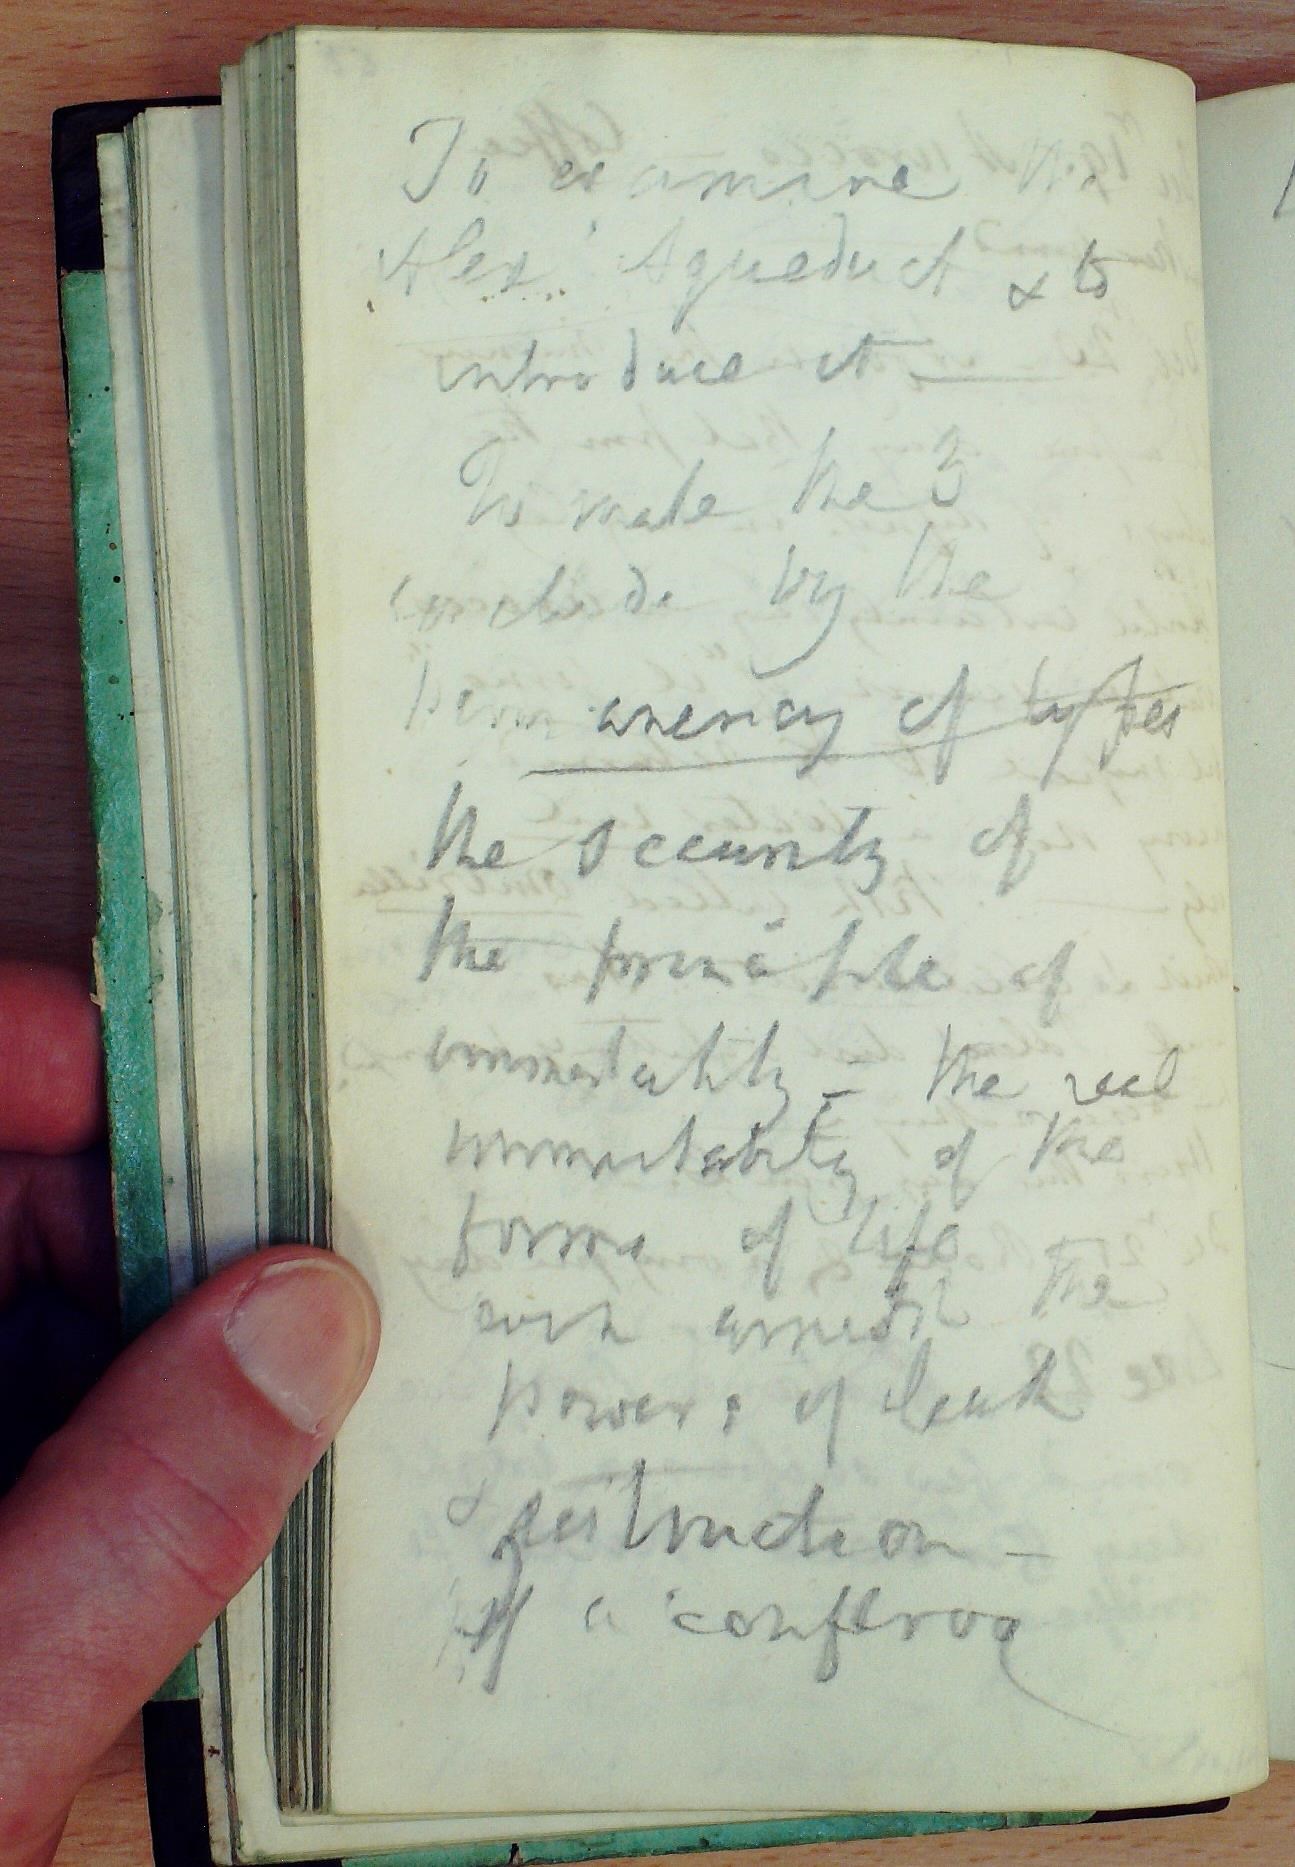 To examine the
Alex. Aqueduct & to
introduce it —
To make the 3
conclude by the
permanency of types
the security of
the principle of
immortality – the real
immortality of the
forms of life
even amidst the
powers of death
& destruction –
If a conferva